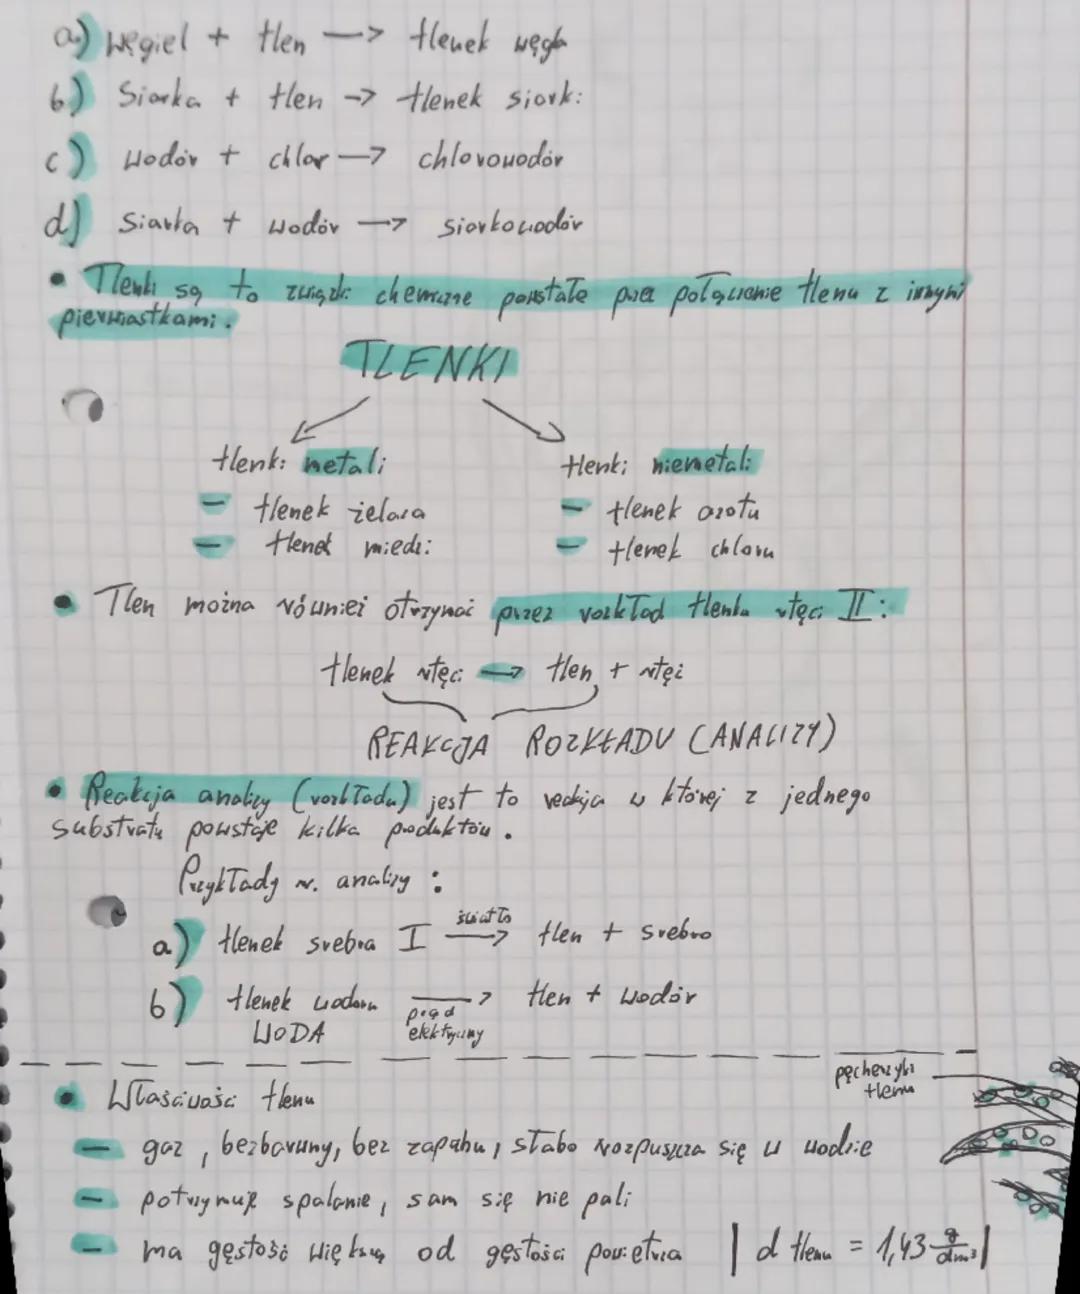 a) węgiel + tlen → tlenek węgla
b) Siarka + tlen → tlenek siarki
c) Wodór + chlor → chlorowodór
d) Siarka + wodór → siarkowodór
• Tlenki są to związki chemiczne powstałe przez połączenie tlenu z innymi
pierwiastkami.
TLENKI
tlenki metali tlenki niemetali
– tlenek żelaza – tlenek azotu
– tlenek miedzi – tlenek chloru
• Tlen można również otrzymać przez rozkład tlenku rtęci II:
tlenek rtęci → tlen + rtęć
REAKCJA ROZKŁADU (ANALIZY)
• Reakcja analizy (rozkładu) jest to reakcja w której z jednego
substratu powstaje kilka produktów.
Przykłady r. analizy :
a) tlenek srebra I światło → tlen + srebro
b) tlenek wodoru → tlen + wodór
WODA prąd elektryczny
pęcherzyki
tlenu
• Właściwości tlenu
– gaz, bezbarwny, bez zapachu, słabo rozpuszcza się w wodzie
– potrzymuje spalanie, sam się nie pali
– ma gęstość większą od gęstości powietrza | d tlenu = 1,43 g/dm³ |